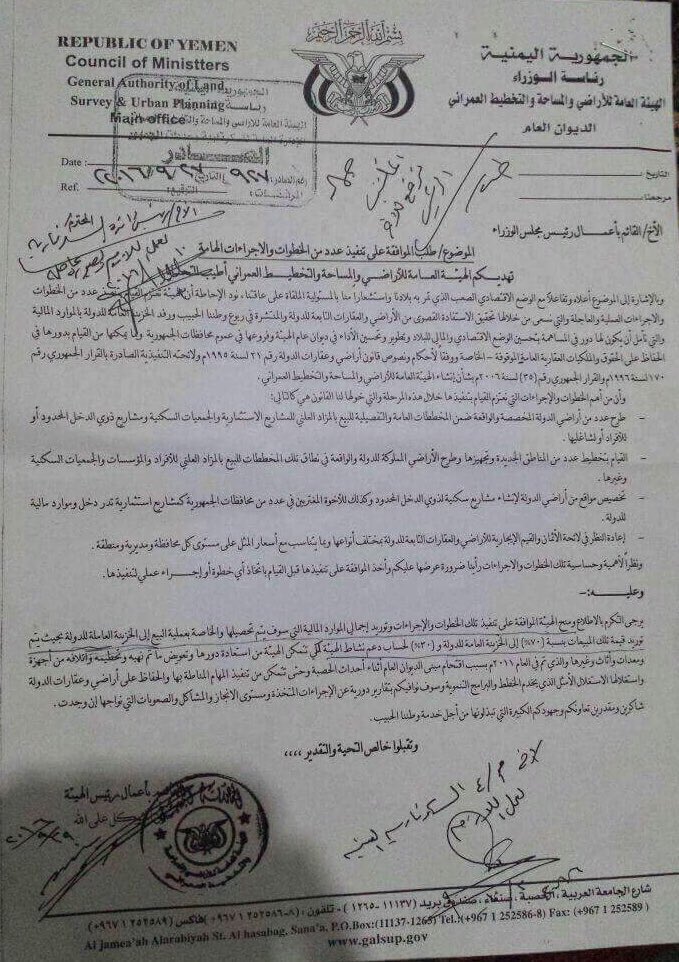 بسم الله الرحمن الرحيم
REPUBLIC OF YEMEN
Council of Ministters
General Authority of Land
Survey & Urban Planning
Main office
الجمهورية اليمنية
رئاسة الوزراء
الهيئة العامة للأراضي والمساحة والتخطيط العمراني
الديوان العام
Date :
Ref.
رقم الصادر: ٩٢٧ التاريخ ٢٠١٦/٩/٢٧
المرفقات:
التاريخ :
مرجعنا :
الأخ/ القائم بأعمال رئيس مجلس الوزراء
الموضوع/ طلب الموافقة على تنفيذ عدد من الخطوات والاجراءات الهامة
تهديكم الهيئة العامة للأراضي والمساحة والتخطيط العمراني أطيب
وبالإشارة إلى الموضوع أعلاه وتفاعلاً مع الوضع الاقتصادي الصعب الذي تمر به بلادنا واستشعارا منا بالمسئولية الملقاة على عاتقنا، نود الإحاطة أن الهيئة تعتزم القيام بتنفيذ عدد من الخطوات
والاجراءات العملية والعاجلة والتي نسعى من خلالها تحقيق الاستفادة القصوى من الأراضي والعقارات التابعة للدولة والمنتشرة في ربوع وطننا الحبيب ورفد الخزينة العامة للدولة بالموارد المالية
والتي نأمل أن يكون لها دور في المساهمة بتحسين الوضع الاقتصادي والمالي للبلاد وتطوير وتحسين الأداء في ديوان عام الهيئة وفروعها في عموم محافظات الجمهورية وبما يمكنها من القيام بدورها في
الحفاظ على الحقوق والملكيات العقارية العامة - الموقوفة - الخاصة ووفقاً لأحكام ونصوص قانون أراضي وعقارات الدولة رقم ٢١ لسنة ١٩٩٥م ولائحته التنفيذية الصادرة بالقرار الجمهوري رقم
١٧٠ لسنة ١٩٩٦م والقرار الجمهوري رقم (٣٥) لسنة ٢٠٠٦م بشأن إنشاء الهيئة العامة للأراضي والمساحة والتخطيط العمراني.
وأن من أهم الخطوات والإجراءات التي نعتزم القيام بتنفيذها خلال هذه المرحلة والتي خولها لنا القانون هي كالتالي:
- طرح عدد من أراضي الدولة المخصصة والواقعة ضمن المخططات العامة والتفصيلية للبيع بالمزاد العلني للمشاريع الاستثمارية والجمعيات السكنية ومشاريع ذوي الدخل الحدود أو
للأفراد أو لشاغليها.
- القيام بتخطيط عدد من المناطق الجديدة وتجهيزها وطرح الأراضي المملوكة للدولة والواقعة في نطاق تلك المخططات للبيع بالمزاد العلني للأفراد والمؤسسات والجمعيات السكنية
وغيرها.
- تخصيص مواقع من أراضي الدولة لإنشاء مشاريع سكنية لذوي الدخل المحدود وكذلك للأخوة المغتربين في عدد من محافظات الجمهورية كمشاريع استثمارية تدر دخل وموارد مالية
للدولة.
- إعادة النظر في لائحة الأثمان والقيم الإيجارية للأراضي والعقارات التابعة للدولة بمختلف أنواعها وبما يتناسب مع أسعار المثل على مستوى كل محافظة ومديرية ومنطقة.
ونظراً لأهمية وحساسية تلك الخطوات والاجراءات رأينا ضرورة عرضها عليكم وأخذ الموافقة على تنفيذها قبل القيام باتخاذ أي خطوة أو إجراء عملي لتنفيذها.
وعليه:-
يرجى التكرم بالاطلاع ومنح الهيئة الموافقة على تنفيذ تلك الخطوات والإجراءات وتوريد إجمالي الموارد المالية التي سوف يتم تحصيلها والخاصة بعملية البيع إلى الخزينة العاملة للدولة بحيث يتم
توريد قيمة تلك المبيعات بنسبة (٧٠%) إلى الخزينة العامة للدولة و (٣٠%) لحساب دعم نشاط الهيئة لكي تتمكن الهيئة من استعادة دورها وتعويض ما تم نهبه وتحطيمه واتلافه من أجهزة
ومعدات وأثاث وغيرها والذي تم في العام ٢٠١١م بسبب اقتحام مبنى الديوان العام أثناء أحداث الحصبة وحتى تتمكن من تنفيذ المهام المناطة بها والحفاظ على أراضي وعقارات الدولة
واستغلالها الاستغلال الأمثل الذي يخدم الخطط والبرامج التنموية وسوف نوافيكم بتقارير دورية عن الإجراءات المتخذة ومستوى الانجاز والمشاكل والصعوبات التي نواجها إن وجدت.
شاكرين ومقدرين تعاونكم وجهودكم الكبيرة التي تبذلونها من أجل خدمة وطننا الحبيب.
وتقبلوا خالص التحية والتقدير ،،،،
بأعمال رئيس الهيئة
شارع الجامعة العربية، الحصبة، صنعاء، صندوق بريد (١١١٣٧ - ١٢٦٥) - تلفون: (٨-٢٥٢٥٨٦ ١ ٩٦٧+) فاكس (٢٥٢٥٨٩ ١ ٩٦٧+)
Al jamea'ah Alarabiyah St. Al hasabag, Sana'a, P.O.Box:(11137-1265) Tel.:(+967 1 252586-8) Fax: (+967 1 252589 )
www.galsup.gov